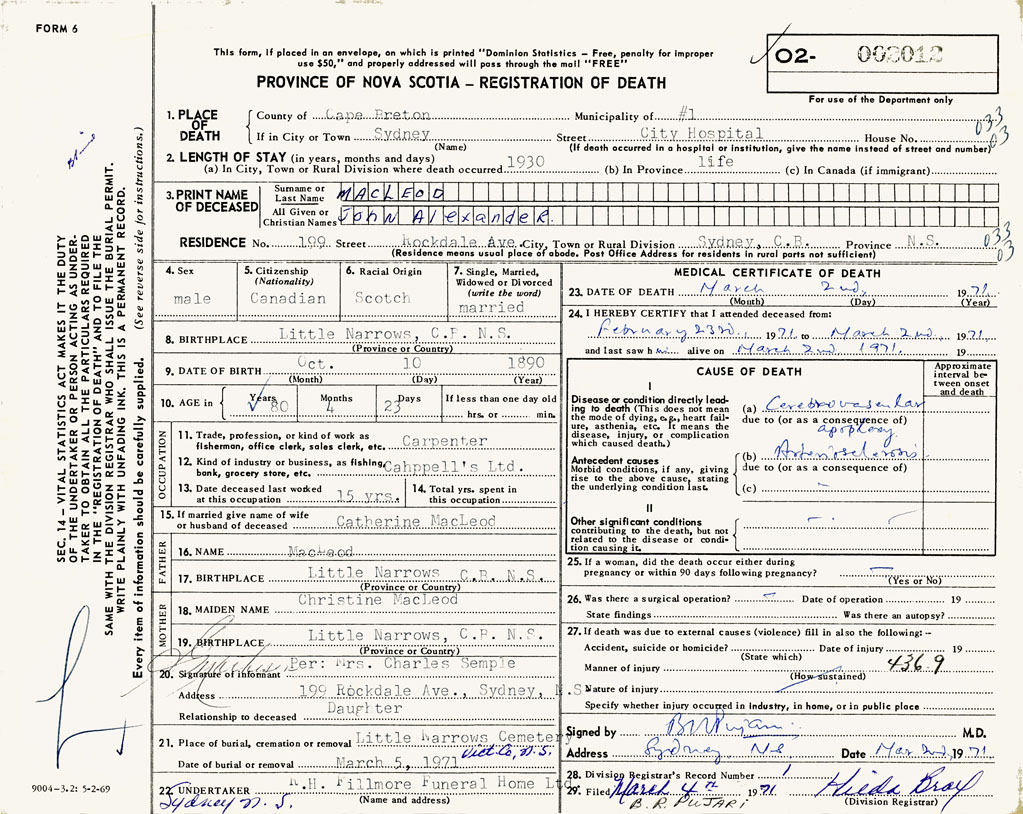 FORM 6
This form, If placed in an envelope, on which is printed "Dominion Statistics – Free, penalty for improper
use $50," and properly addressed will pass through the mail "FREE"
PROVINCE OF NOVA SCOTIA – REGISTRATION OF DEATH
O2- 002012
For use of the Department only
SEC. 14 – VITAL STATISTICS ACT MAKES IT THE DUTY
OF THE UNDERTAKER OR PERSON ACTING AS UNDER-
TAKER TO OBTAIN ALL THE PARTICULARS REQUIRED
IN THE "REGISTRATION OF DEATH" AND TO FILE THE
SAME WITH THE DIVISION REGISTRAR WHO SHALL ISSUE THE BURIAL PERMIT.
WRITE PLAINLY WITH UNFADING INK. THIS IS A PERMANENT RECORD.
Every item of information should be carefully supplied. (See reverse side for instructions.)
9004-3.2: 5-2-69
1. PLACE OF DEATH
County of Cape Breton Municipality of #1 033
If in City or Town Sydney Street City Hospital House No. 03
(Name) (If death occurred in a hospital or institution, give the name instead of street and number)
2. LENGTH OF STAY (in years, months and days)
(a) In City, Town or Rural Division where death occurred 1930 (b) In Province life (c) In Canada (if immigrant)
3. PRINT NAME OF DECEASED
Surname or Last Name MACLEOD
All Given or Christian Names JOHN AlexANDER
RESIDENCE No. 199 Street Rockdale Ave. City, Town or Rural Division Sydney, C.B. Province N.S. 033 03
(Residence means usual place of abode. Post Office Address for residents in rural parts not sufficient)
4. Sex male
5. Citizenship (Nationality) Canadian
6. Racial Origin Scotch
7. Single, Married, Widowed or Divorced (write the word) married
8. BIRTHPLACE Little Narrows, C.B. N.S.
(Province or Country)
9. DATE OF BIRTH Oct. 10 1890
(Month) (Day) (Year)
10. AGE in Years 80 Months 4 Days 23 If less than one day old hrs. or min.
OCCUPATION
11. Trade, profession, or kind of work as fisherman, office clerk, sales clerk, etc. Carpenter
12. Kind of industry or business, as fishing, bank, grocery store, etc. Cahppell's Ltd.
13. Date deceased last worked at this occupation 15 yrs.
14. Total yrs. spent in this occupation
15. If married give name of wife or husband of deceased Catherine MacLeod
FATHER
16. NAME MacLeod
17. BIRTHPLACE Little Narrows C.B. N.S.
(Province or Country)
MOTHER
18. MAIDEN NAME Christine MacLeod
19. BIRTHPLACE Little Narrows, C.B. N.S.
(Province or Country)
20. Signature of informant Per: Mrs. Charles Semple
Address 199 Rockdale Ave., Sydney, N.S
Relationship to deceased Daughter
21. Place of burial, cremation or removal Little Narrows Cemetery
Vict. Co, N.S.
Date of burial or removal March 5, 1971
22. UNDERTAKER H. Fillmore Funeral Home Ltd
Sydney N.S. (Name and address)
MEDICAL CERTIFICATE OF DEATH
23. DATE OF DEATH March 2nd, 1971
(Month) (Day) (Year)
24. I HEREBY CERTIFY that I attended deceased from:
February 23rd, 1971 to March 2nd, 1971
and last saw him alive on March 2nd 1971. 19
CAUSE OF DEATH
Approximate interval between onset and death
I
Disease or condition directly leading to death (This does not mean the mode of dying, e.g., heart failure, asthenia, etc. It means the disease, injury, or complication which caused death.)
(a) Cerebrovascular
due to (or as a consequence of)
apoplexy
Antecedent causes
Morbid conditions, if any, giving rise to the above cause, stating the underlying condition last.
(b) Arteriosclerosis
due to (or as a consequence of)
(c) –
II
Other significant conditions
contributing to the death, but not related to the disease or condition causing it.
25. If a woman, did the death occur either during
pregnancy or within 90 days following pregnancy? –
(Yes or No)
26. Was there a surgical operation? – Date of operation 19
State findings Was there an autopsy?
27. If death was due to external causes (violence) fill in also the following: –
Accident, suicide or homicide? Date of injury 19
(State which)
Manner of injury 436.9
(How sustained)
Nature of injury
Specify whether injury occurred in industry, in home, or in public place
Signed by M.D.
Address Sydney NS Date Mar 2nd, 1971.
28. Division Registrar's Record Number 1
29. Filed March 4th 1971 Hilda Bray
B.R. PUJARI (Division Registrar)